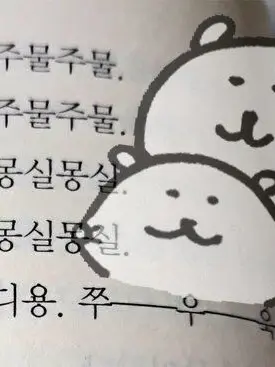 주물주물.
주물주물.
몽실몽실.
몽실몽실.
디용. 쭈 우 욱